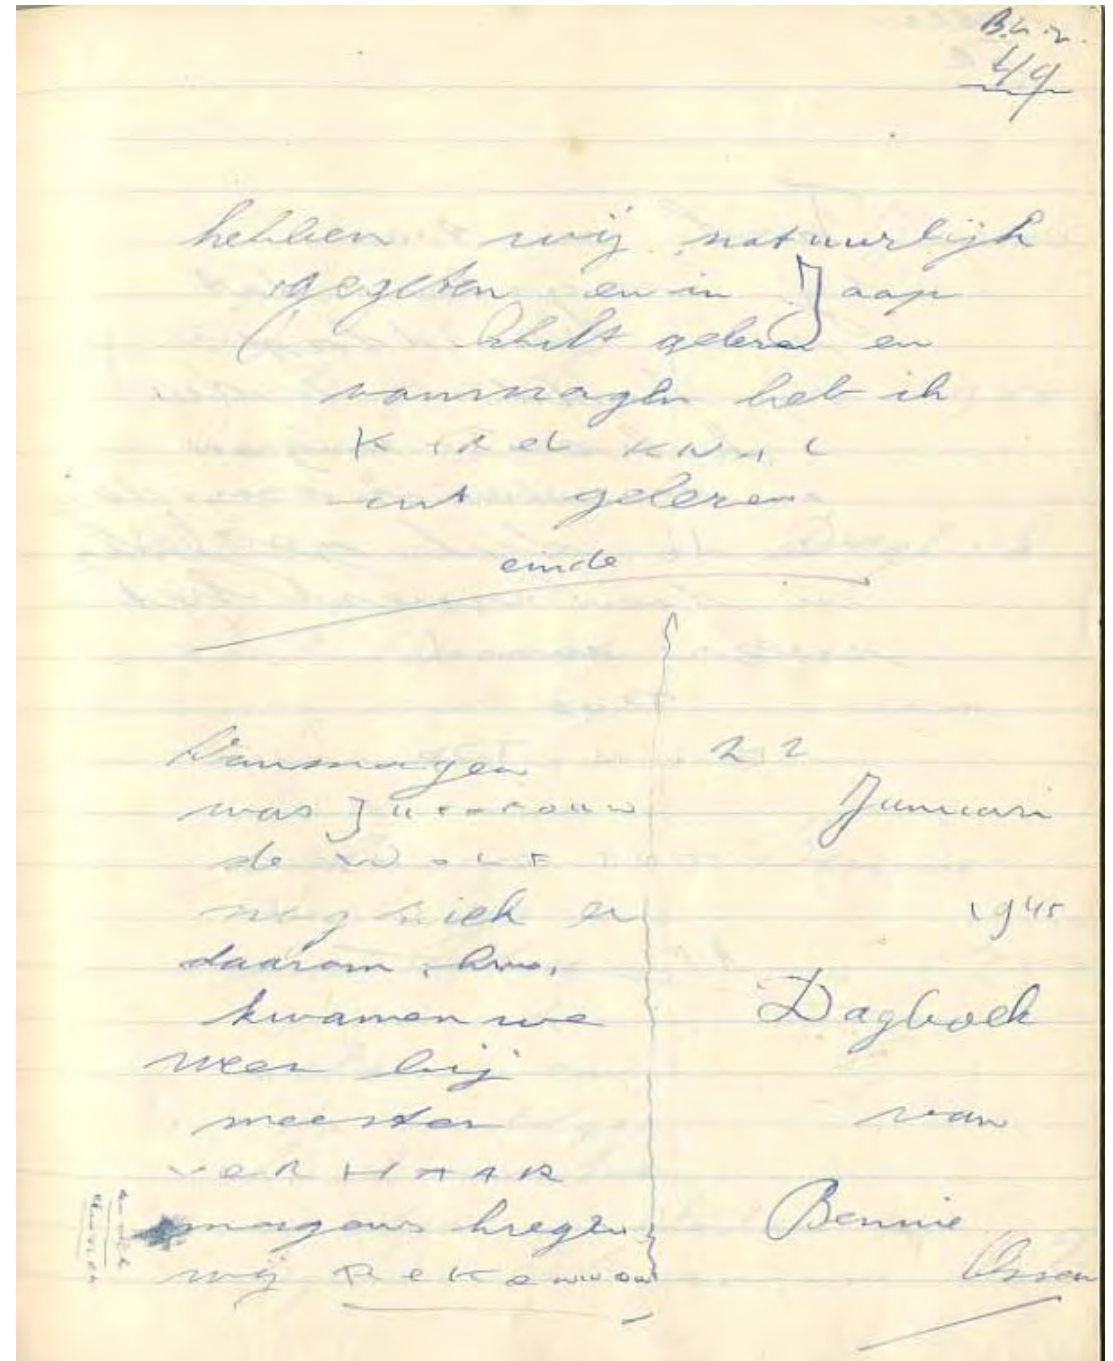 49
hebben wij natuurlijk
gegeten en in Jaap
gelezen en
vanmorgen heb ik
uit gelezen
einde
Vanmorgen
was Juffrouw
de Wolf
nog ziek en
daarom kw.
kwamen we
weer bij
meester
VERHAAR
morgens kregen
wij REKENEN
22
Januari
1945
Dagboek
van
Bennie